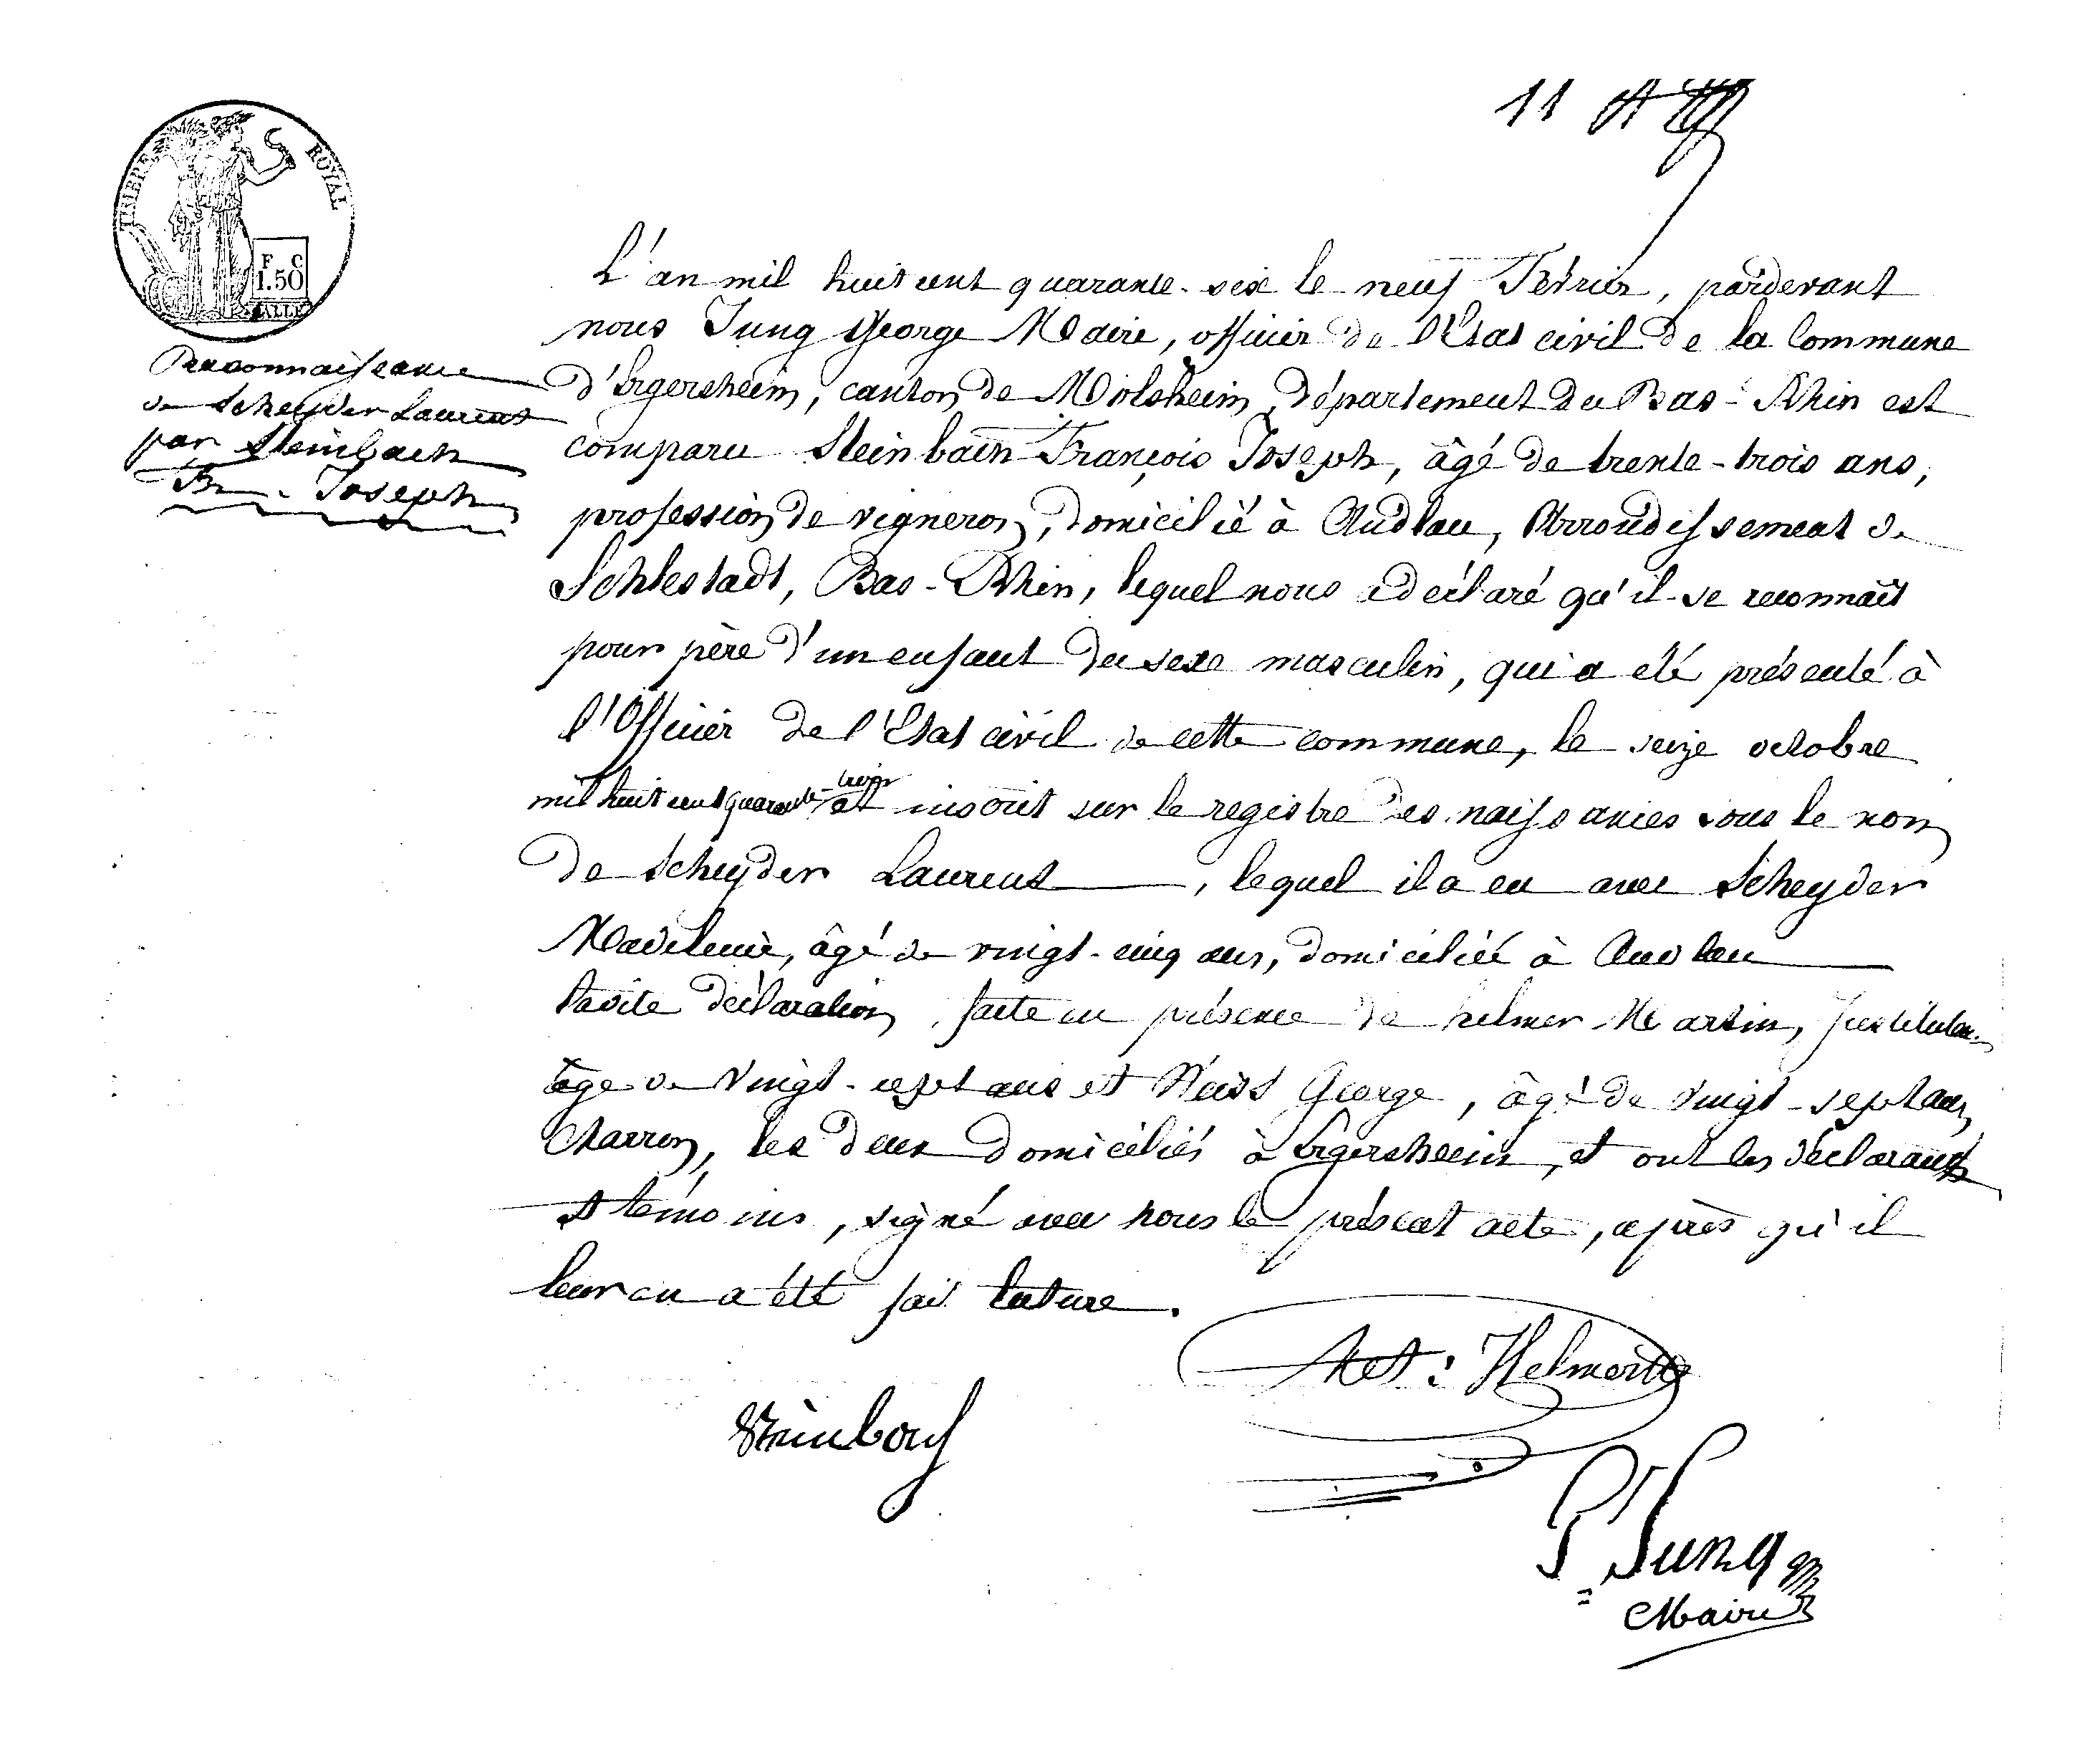 11
TIMBRE ROYAL
F C
1.50
Reconnaissance
de Scheyder Laurent
par Steinbach
Fr. Joseph
L'an mil huit cent quarante-six le neuf Février, pardevant
nous Jung George Maire, officier de l'Etat civil de la Commune
d'Ergersheim, canton de Molsheim, département du Bas-Rhin est
comparu Steinbach François Joseph, âgé de trente-trois ans,
profession de vigneron, domicilié à Andlau, Arrondissement de
Schlestadt, Bas-Rhin, lequel nous a déclaré qu'il se reconnait
pour père d'un enfant du sexe masculin, qui a été présenté à
l'Officier de l'Etat civil de cette commune, le seize octobre
mil huit cent quarante-trois et inscrit sur le registre des naissances sous le nom
de Scheyder Laurent, lequel il a eu avec Scheyder
Madeleine, âgé de vingt-cinq ans, domiciliée à Andlau
ladite déclaration, faite en présence de helmer Martin, Instituteur
âge de vingt-sept ans et Weiss George, âgé de vingt-sept ans,
Charron, les deux domiciliés à Ergersheim, et ont les déclarants
et témoins, signé avec nous le présent acte, après qu'il
leur en a été fait lecture.
Helmer
Steinbach
Jung
Maire